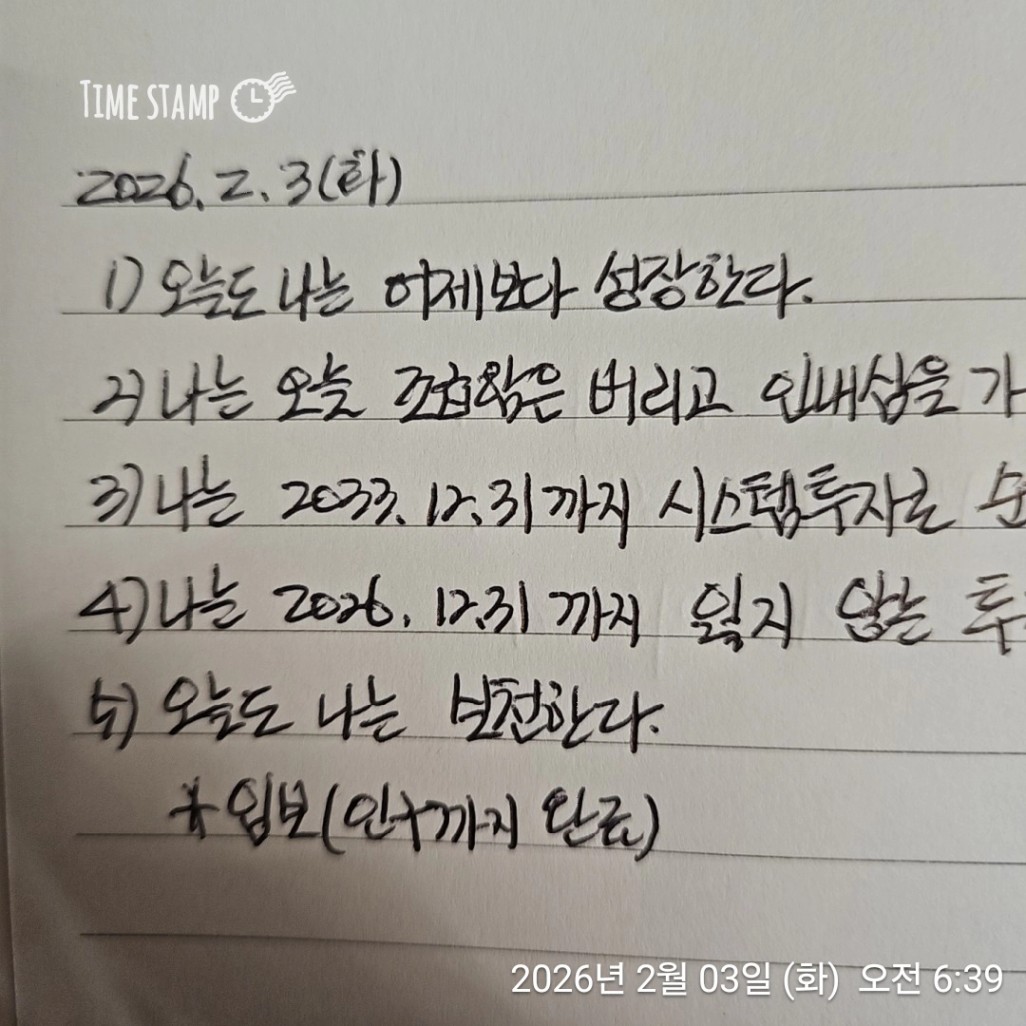 TIME STAMP
2026. 2. 3(화)
1) 오늘도 나는 어제보다 성장한다.
2) 나는 오늘 조급함은 버리고 인내심을 가
3) 나는 2033. 12. 31까지 시스템투자로 순
4) 나는 2026. 12. 31까지 잃지 않는 투
5) 오늘도 나는 실천한다.
* 입보(인+까지 완료)
2026년 2월 03일 (화) 오전 6:39